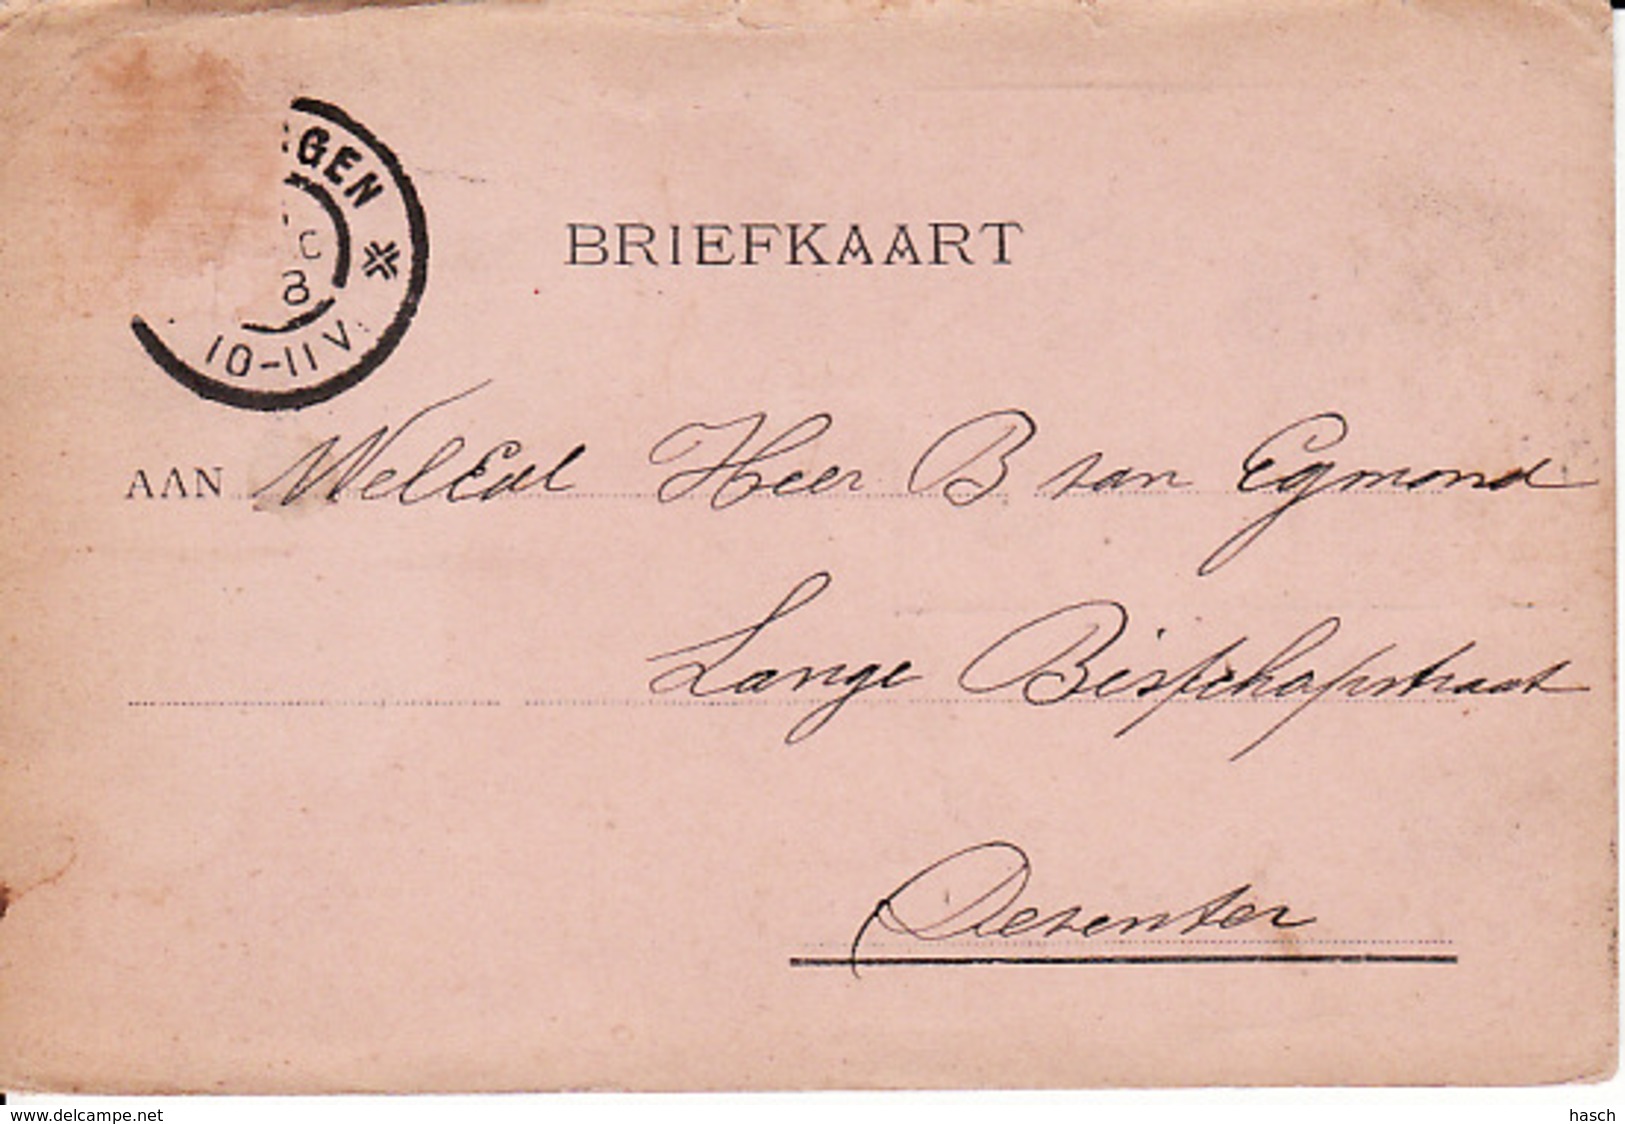 GEN
8
10-11 V.
BRIEFKAART
AAN WelEdl Heer B van Egmond
Lange Bisschopstraat
Deventer
www.delcampe.net
hasch